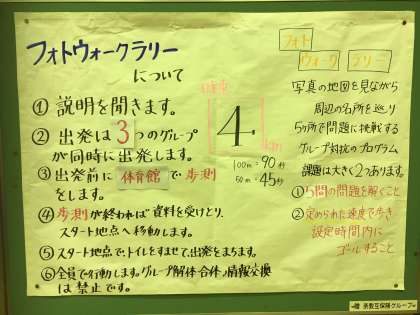 フォトウォークラリー
について
① 説明を聞きます。
② 出発は3つのグループ
が同時に出発します。
③ 出発前に 体育館 で 歩測
をします。
④ 歩測が終われば資料を受けとり、
スタート地点へ移動します。
⑤ スタート地点で、トイレをすませて、出発をまちます。
⑥ 全員で行動します。グループ解体・合体、情報交換
は禁止です。
4
km
100m=90秒
50m=45秒
フォト
ウォーク ラリー
写真の地図を見ながら
周辺の名所を巡り
5ヶ所で問題に挑戦する
グループ対抗のプログラム
課題は大きく2つあります。
① 5問の問題を解くこと
② 定められた速度で歩き
設定時間内に
ゴールすること